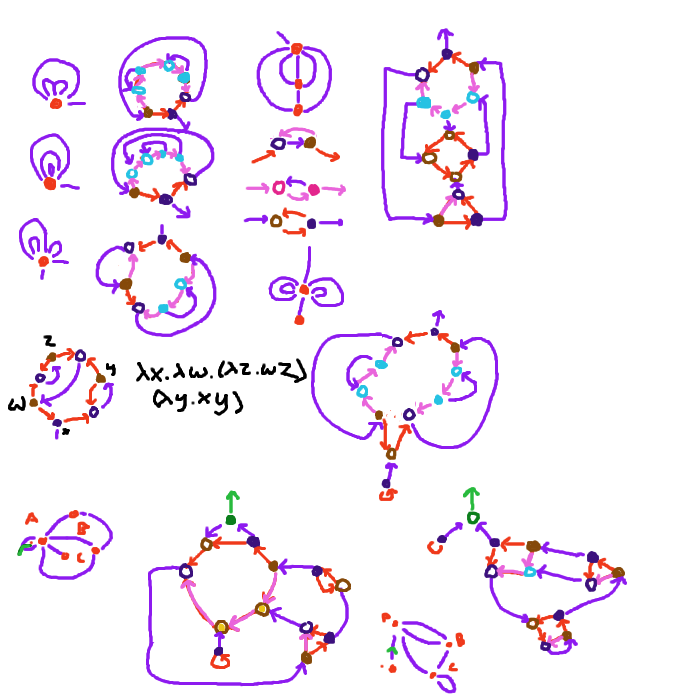 z
y
w
x
λx.λw.(λz.wz)
(λy.xy)
A
B
C
A
B
C